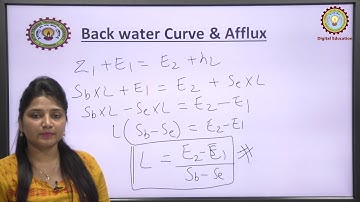 Back water Curve & Afflux
Digital Education
Z1 + E1 = E2 + hL
Sb×L + E1 = E2 + Se×L
Sb×L - Se×L = E2 - E1
L(Sb-Se) = E2-E1
L = E2-E1 / Sb-Se